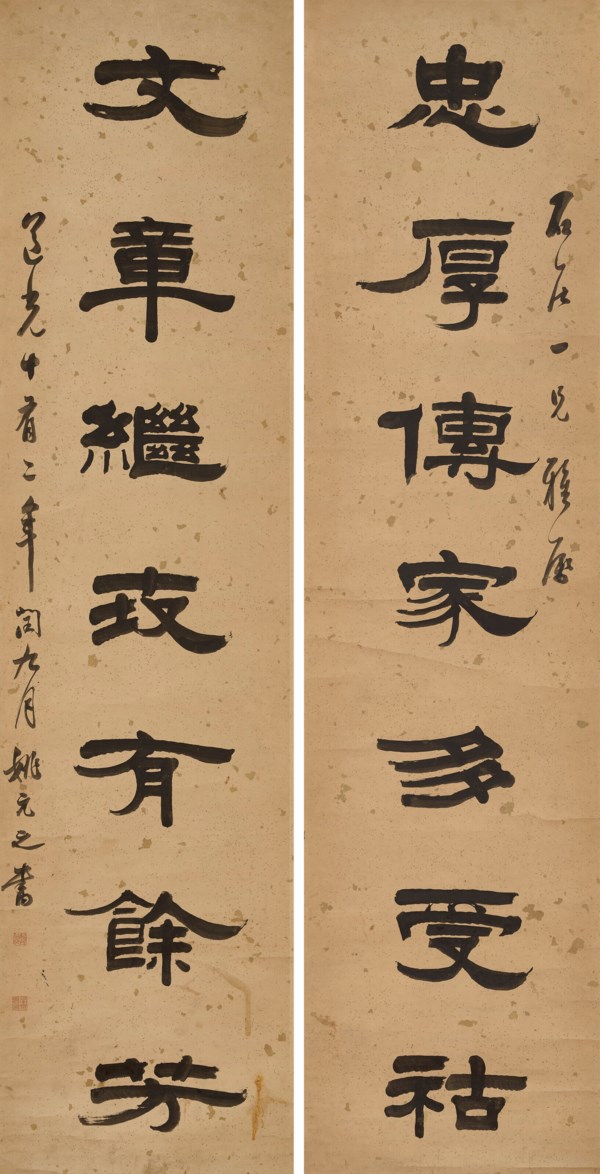 石一兄雅屬
忠厚傳家多受祜
文章繼政有餘芳
道光十有二年閏九月姚元之書